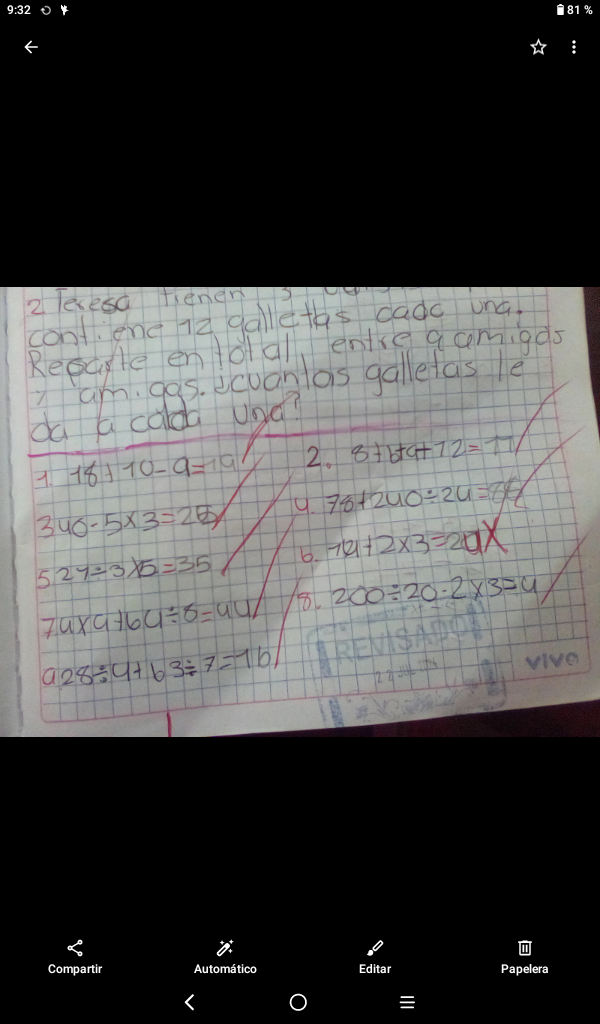 9:32
81 %
2 Teresa tienen 3
contiene 12 galletas cada una.
Reparte en total entre 9 amigos
y amigas. ¿cuantas galletas le
da a calda una?
1. 18+10-9=19
2. 12=11
340-5×3=25
4. 78+240÷24=88
5 27÷3×5=35
6. +2×3=20
7 4×9+64÷8=44
8. 200÷20-2×3=4
9 28÷4+63÷7=16
REVISADO
VIVO
Compartir
Automático
Editar
Papelera